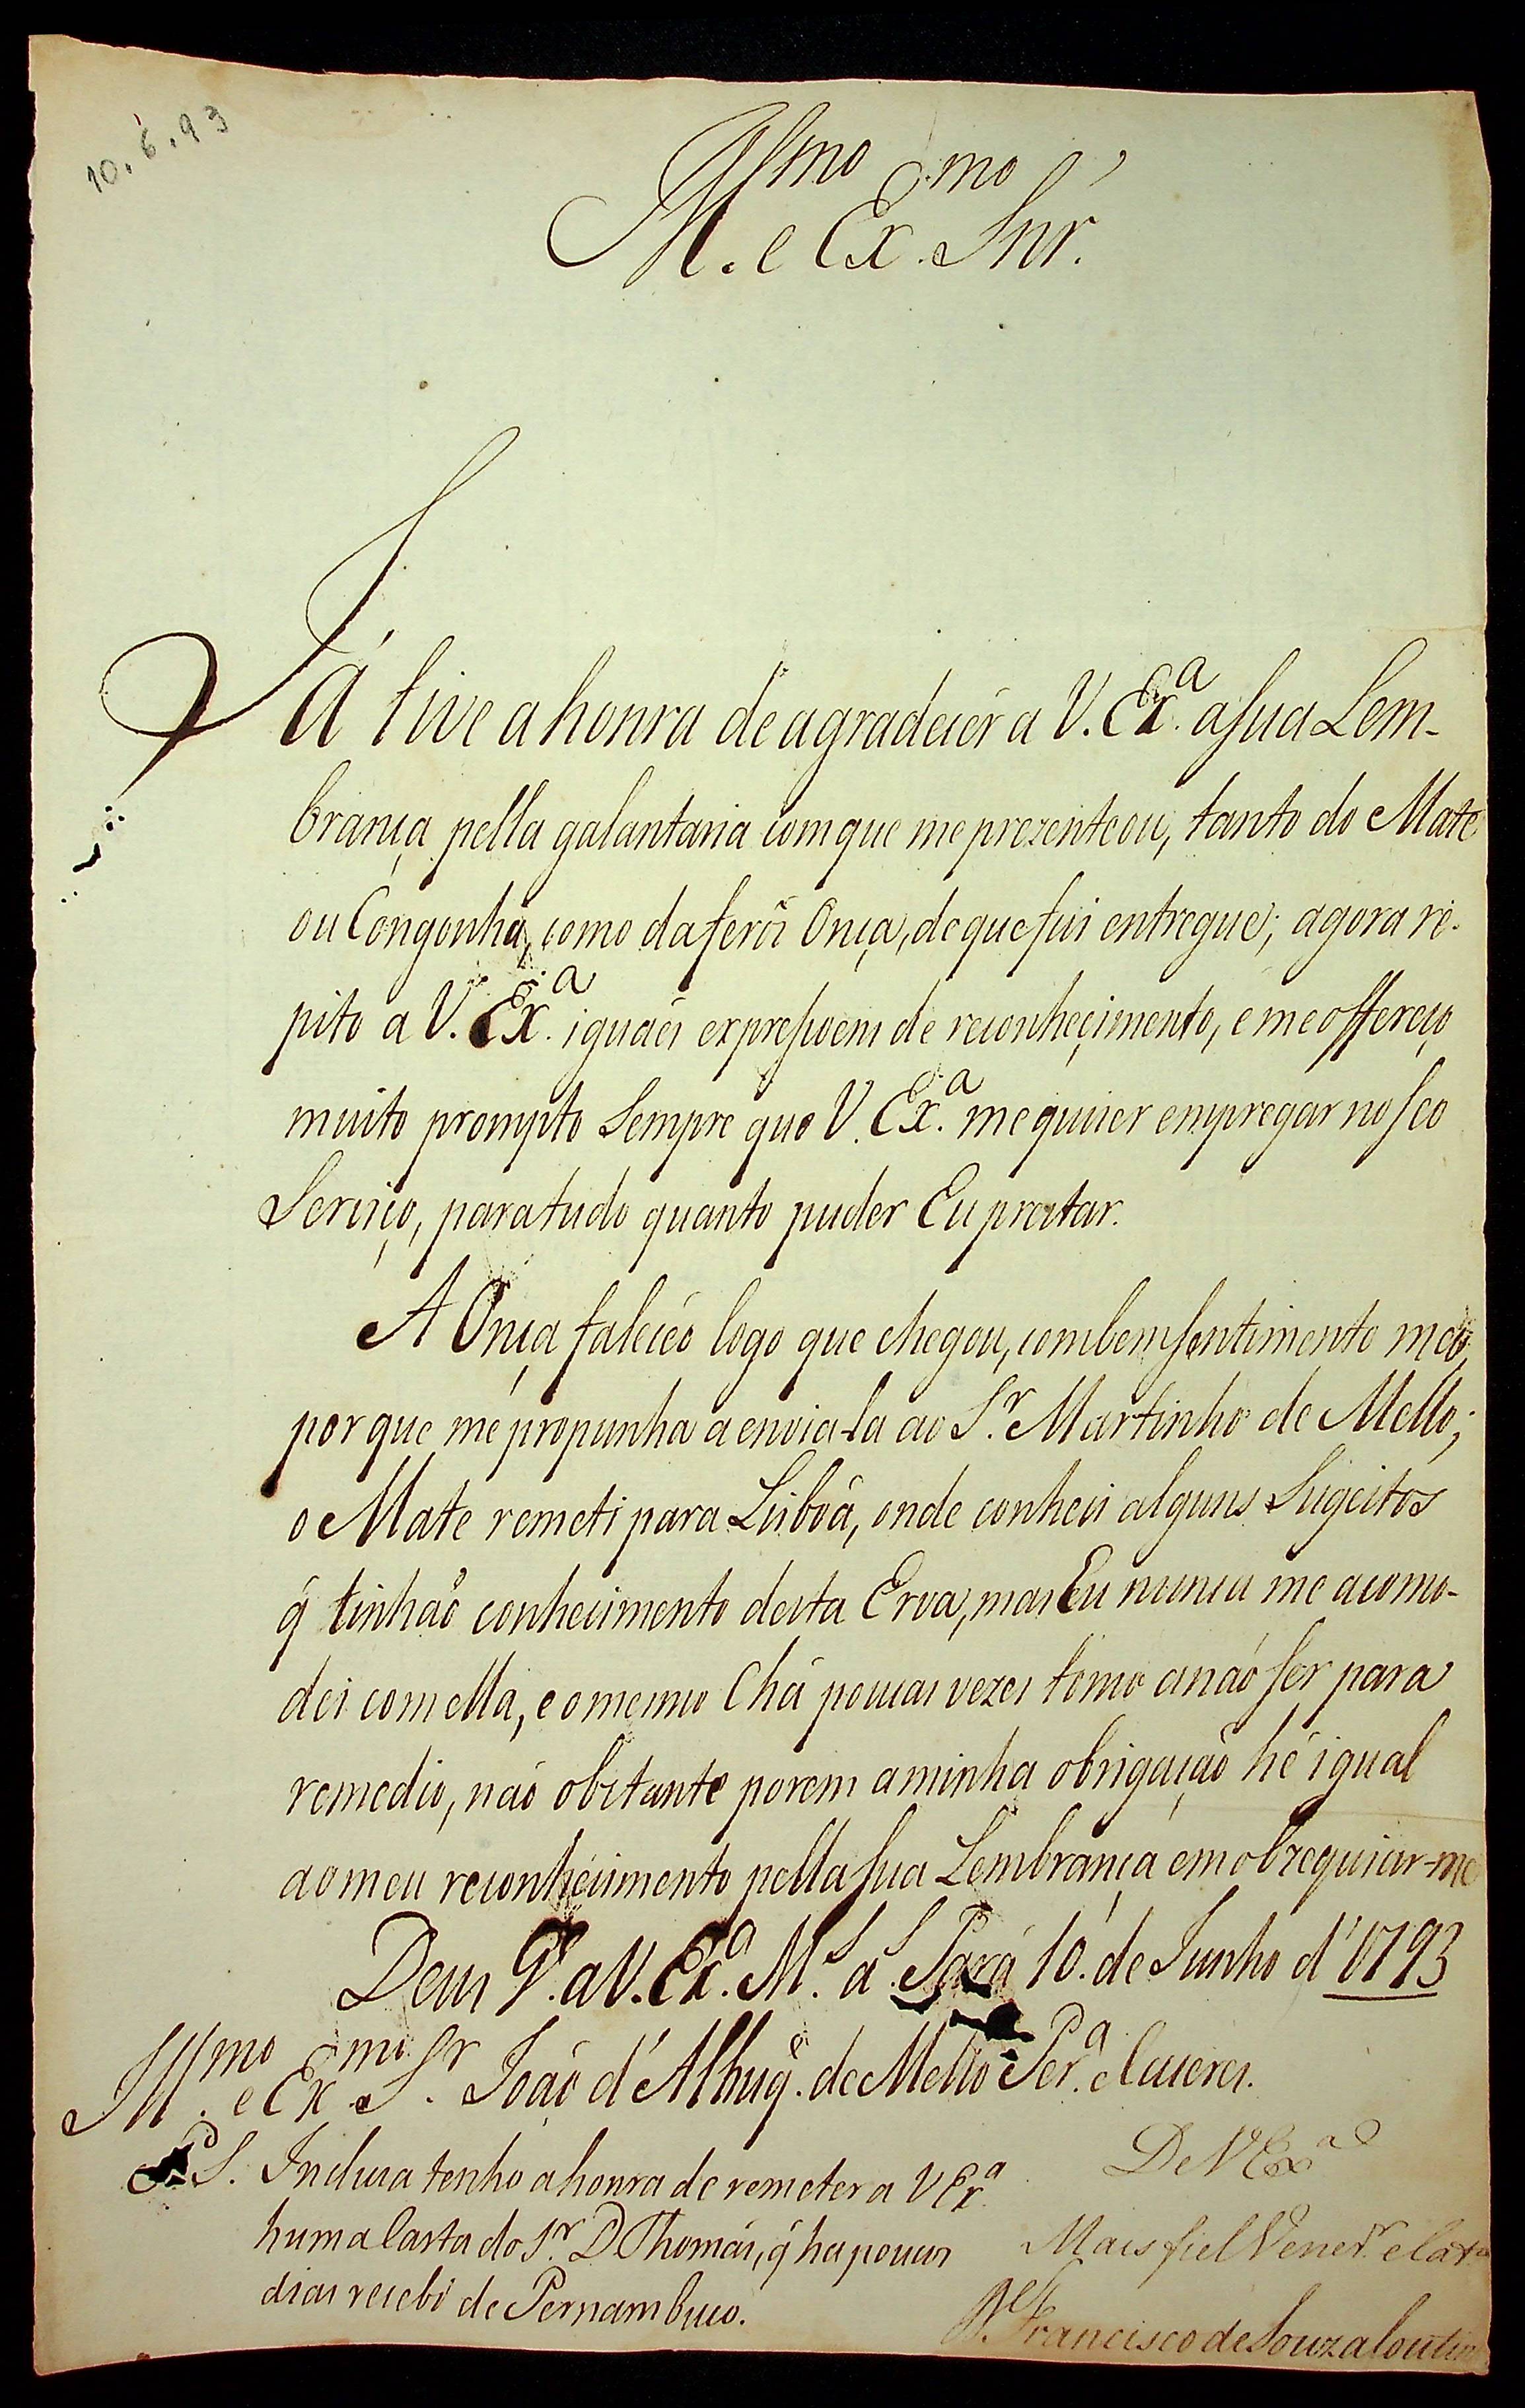 10.6.93
Ill.mo e Ex.mo Snr.
Já tive a honra de agradecer a V. Ex.a a sua Lem-
brança pella galantaria com que me prezenteou, tanto do Mate
ou Congonha, como da feróz Onça, de que fui entregue; agora re-
pito a V. Ex.a iguáes expressoens de reconheçimento, e me offereço
muito prompto Sempre que V. Ex.a me quizer empregar no seo
Serviço, para tudo quanto puder Eu prestar.
A Onça faleceo logo que chegou, com bem sentimento meo,
por que me propunha a envia-la ao S.r Martinho de Mello;
o Mate remeti para Lisboa, onde conheci alguns Sugeitos
q̃ tinhaõ conhecimento desta Erva, mas Eu nunca me acomo-
dei com ella, e o mesmo Chá poucas vezes tomo a naõ ser para
remedio, naõ obstante porem a minha obrigaçaõ hé igual
ao meu reconhecimento pella sua Lembrança em obzequiar-me
Deus G.e a V. Ex.a M.s a.s Pará 10. de Junho d'1793
Ill.mo e Ex.mo S.r Joaõ d'Albuq.e de Mello Per.a e Caceres.
P.S. Incluza tenho a honra de remeter a V Ex.a
huma Carta do S.r D. Thomás, q̃ ha poucos
dias recebi de Pernambuco.
De V Ex.a
Mais fiel Vener.r e Cat.o
D. Francisco de Souza Coutin